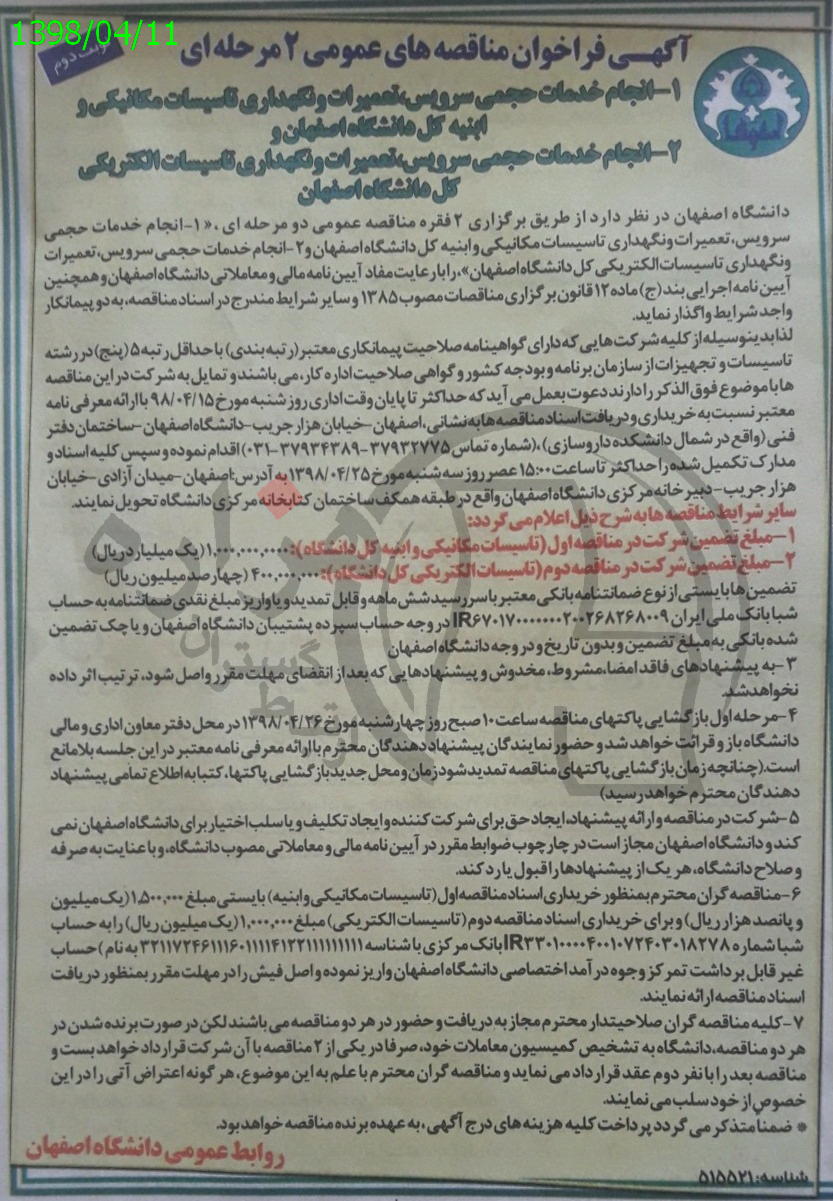 1398/04/11
نوبت دوم
آگهی فراخوان مناقصه های عمومی ۲ مرحله ای
۱-انجام خدمات حجمی سرویس،تعمیرات ونگهداری تاسیسات مکانیکی و
ابنیه کل دانشگاه اصفهان و
۲-انجام خدمات حجمی سرویس،تعمیرات ونگهداری تاسیسات الکتریکی
کل دانشگاه اصفهان
دانشگاه اصفهان در نظر دارد از طریق برگزاری ۲ فقره مناقصه عمومی دو مرحله ای ، «۱-انجام خدمات حجمی
سرویس،تعمیرات ونگهداری تاسیسات مکانیکی و ابنیه کل دانشگاه اصفهان و۲-انجام خدمات حجمی سرویس،تعمیرات
ونگهداری تاسیسات الکتریکی کل دانشگاه اصفهان»،را با رعایت مفاد آیین نامه مالی و معاملاتی دانشگاه اصفهان و همچنین
آیین نامه اجرایی بند(ج) ماده۱۲ قانون برگزاری مناقصات مصوب ۱۳۸۵ و سایر شرایط مندرج در اسناد مناقصه، به دو پیمانکار
واجد شرایط واگذار نماید.
لذا بدینوسیله از کلیه شرکت هایی که دارای گواهینامه صلاحیت پیمانکاری معتبر(رتبه بندی) با حداقل رتبه ۵ (پنج) در رشته
تاسیسات و تجهیزات از سازمان برنامه و بودجه کشور و گواهی صلاحیت اداره کار، می باشند و تمایل به شرکت در این مناقصه
ها با موضوع فوق الذکر را دارند دعوت بعمل می آید که حداکثر تا پایان وقت اداری روز شنبه مورخ ۹۸/۰۴/۱۵ با ارائه معرفی نامه
معتبر نسبت به خریداری و دریافت اسناد مناقصه ها به نشانی، اصفهان -خیابان هزار جریب-دانشگاه اصفهان -ساختمان دفتر
فنی (واقع در شمال دانشکده داروسازی)،(شماره تماس ۳۷۹۳۲۷۷۵-۳۷۹۳۴۳۸۹-۰۳۱) اقدام نموده و سپس کلیه اسناد و
مدارک تکمیل شده را حداکثر تا ساعت ۱۵:۰۰ عصر روز سه شنبه مورخ ۱۳۹۸/۰۴/۲۵ به آدرس:اصفهان -میدان آزادی -خیابان
هزار جریب-دبیرخانه مرکزی دانشگاه اصفهان واقع در طبقه همکف ساختمان کتابخانه مرکزی دانشگاه تحویل نمایند.
سایر شرایط مناقصه ها به شرح ذیل اعلام می گردد:
۱-مبلغ تضمین شرکت در مناقصه اول (تاسیسات مکانیکی و ابنیه کل دانشگاه ): ۱,۰۰۰,۰۰۰,۰۰۰ (یک میلیارد ریال)
۲-مبلغ تضمین شرکت در مناقصه دوم (تاسیسات الکتریکی کل دانشگاه): ۴۰۰,۰۰۰,۰۰۰ (چهارصد میلیون ریال)
تضمین ها بایستی از نوع ضمانتنامه بانکی معتبر با سررسید شش ماهه و قابل تمدید و یا واریز مبلغ نقدی ضمانتنامه به حساب
شبا بانک ملی ایران IR۶۷۰۱۷۰۰۰۰۰۰۲۰۰۲۶۸۲۶۸۰۰۹ در وجه حساب سپرده پشتیبان دانشگاه اصفهان و یا چک تضمین
شده بانکی به مبلغ تضمین و بدون تاریخ و در وجه دانشگاه اصفهان
۳-به پیشنهادهای فاقد امضا،مشروط، مخدوش و پیشنهادهایی که بعد از انقضای مهلت مقرر واصل شود، ترتیب اثر داده
نخواهد شد.
۴-مرحله اول بازگشایی پاکتهای مناقصه ساعت ۱۰ صبح روز چهارشنبه مورخ ۱۳۹۸/۰۴/۲۶ در محل دفتر معاون اداری و مالی
دانشگاه باز و قرائت خواهد شد و حضور نمایندگان پیشنهاد دهندگان محترم با ارائه معرفی نامه معتبر در این جلسه بلامانع
است.(چنانچه زمان بازگشایی پاکتهای مناقصه تمدید شود زمان و محل جدید بازگشایی پاکتها، کتبا به اطلاع تمامی پیشنهاد
دهندگان محترم خواهد رسید)
۵-شرکت در مناقصه و ارائه پیشنهاد، ایجاد حق برای شرکت کننده و ایجاد تکلیف و یا سلب اختیار برای دانشگاه اصفهان نمی
کند و دانشگاه اصفهان مجاز است در چارچوب ضوابط مقرر در آیین نامه مالی و معاملاتی مصوب دانشگاه، و با عنایت به صرفه
و صلاح دانشگاه، هر یک از پیشنهادها را قبول یا رد کند.
۶-مناقصه گران محترم بمنظور خریداری اسناد مناقصه اول (تاسیسات مکانیکی و ابنیه) بایستی مبلغ ۱,۵۰۰,۰۰۰ (یک میلیون
و پانصد هزار ریال) و برای خریداری اسناد مناقصه دوم (تاسیسات الکتریکی) مبلغ ۱,۰۰۰,۰۰۰ (یک میلیون ریال) را به حساب
شبا شماره IR۳۳۰۱۰۰۰۰۴۰۰۱۰۷۲۴۰۳۰۱۸۲۷۸ بانک مرکزی با شناسه ۳۲۱۱۷۲۴۶۱۱۱۶۰۱۱۱۱۴۱۲۲۱۱۱۱۱۱۱۱۱ به نام )حساب
غیر قابل برداشت تمرکز وجوه درآمد اختصاصی دانشگاه اصفهان واریز نموده و اصل فیش را در مهلت مقرر بمنظور دریافت
اسناد مناقصه ارائه نمایند.
۷-کلیه مناقصه گران صلاحیتدار محترم مجاز به دریافت و حضور در هر دو مناقصه می باشند لکن در صورت برنده شدن در
هر دو مناقصه، دانشگاه به تشخیص کمیسیون معاملات خود، صرفا در یکی از ۲ مناقصه با آن شرکت قرارداد خواهد بست و
مناقصه بعد را با نفر دوم عقد قرارداد می نماید و مناقصه گران محترم با علم به این موضوع، هر گونه اعتراض آتی را در این
خصوص از خود سلب می نمایند.
* ضمناً متذکر می گردد پرداخت کلیه هزینه های درج آگهی، به عهده برنده مناقصه خواهد بود.
روابط عمومی دانشگاه اصفهان
شناسه: ۵۱۵۵۲۱